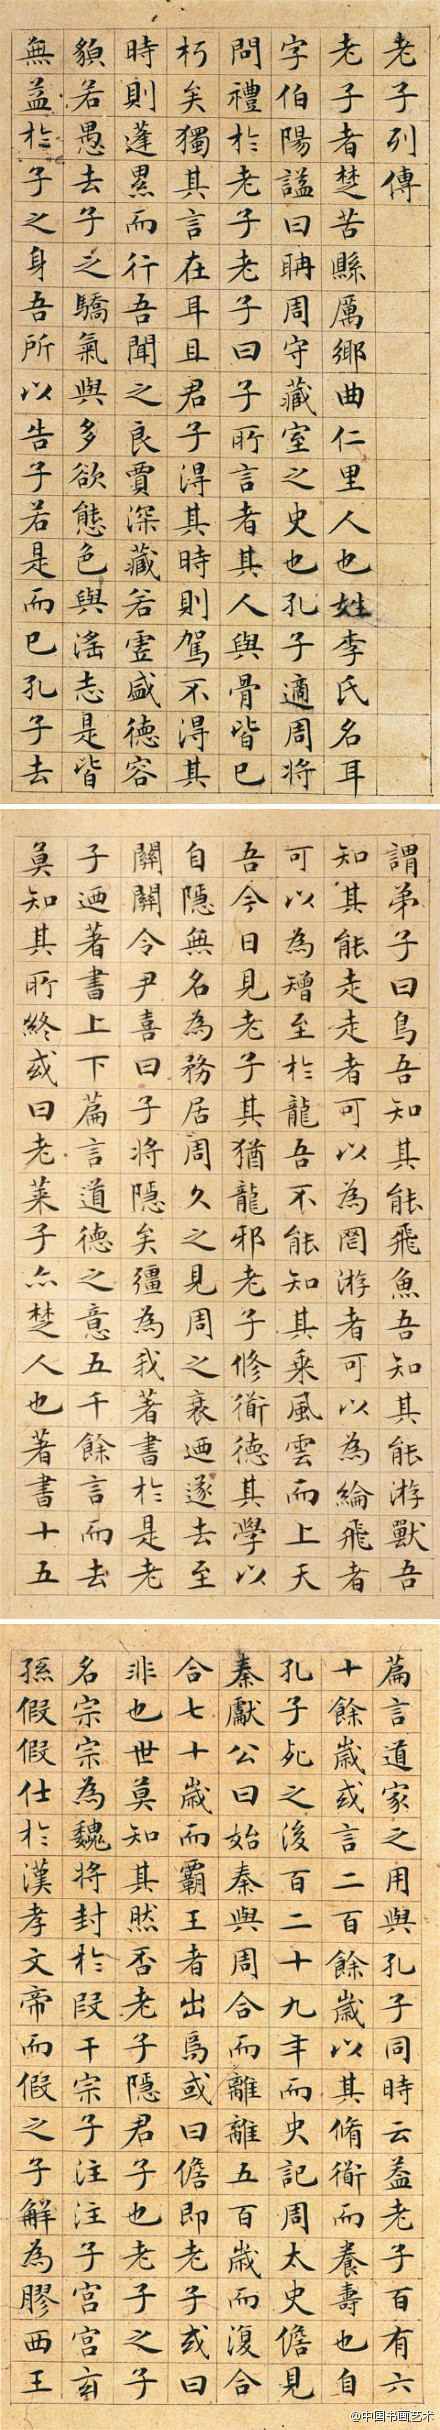 老子列傳
老子者楚苦縣厲鄉曲仁里人也姓李氏名耳
字伯陽謚曰聃周守藏室之史也孔子適周將
問禮於老子老子曰子所言者其人與骨皆已
朽矣獨其言在耳且君子得其時則駕不得其
時則蓬累而行吾聞之良賈深藏若虛盛德容
貌若愚去子之驕氣與多欲態色與淫志是皆
無益於子之身吾所以告子若是而已孔子去
謂弟子曰鳥吾知其能飛魚吾知其能游獸吾
知其能走走者可以為罔游者可以為綸飛者
可以為矰至於龍吾不能知其乘風雲而上天
吾今日見老子其猶龍邪老子修衜德其學以
自隱無名為務居周久之見周之衰迺遂去至
關關令尹喜曰子將隱矣彊為我著書於是老
子迺著書上下篇言道德之意五千餘言而去
莫知其所終或曰老萊子亦楚人也著書十五
篇言道家之用與孔子同時云蓋老子百有六
十餘歲或言二百餘歲以其脩衜而養壽也自
孔子死之後百二十九年而史記周太史儋見
秦獻公曰始秦與周合而離離五百歲而復合
合七十歲而霸王者出焉或曰儋即老子或曰
非也世莫知其然否老子隱君子也老子之子
名宗宗為魏將封於段干宗子注注子宮宮玄
孫假假仕於漢孝文帝而假之子解為膠西王
@中国书画艺术